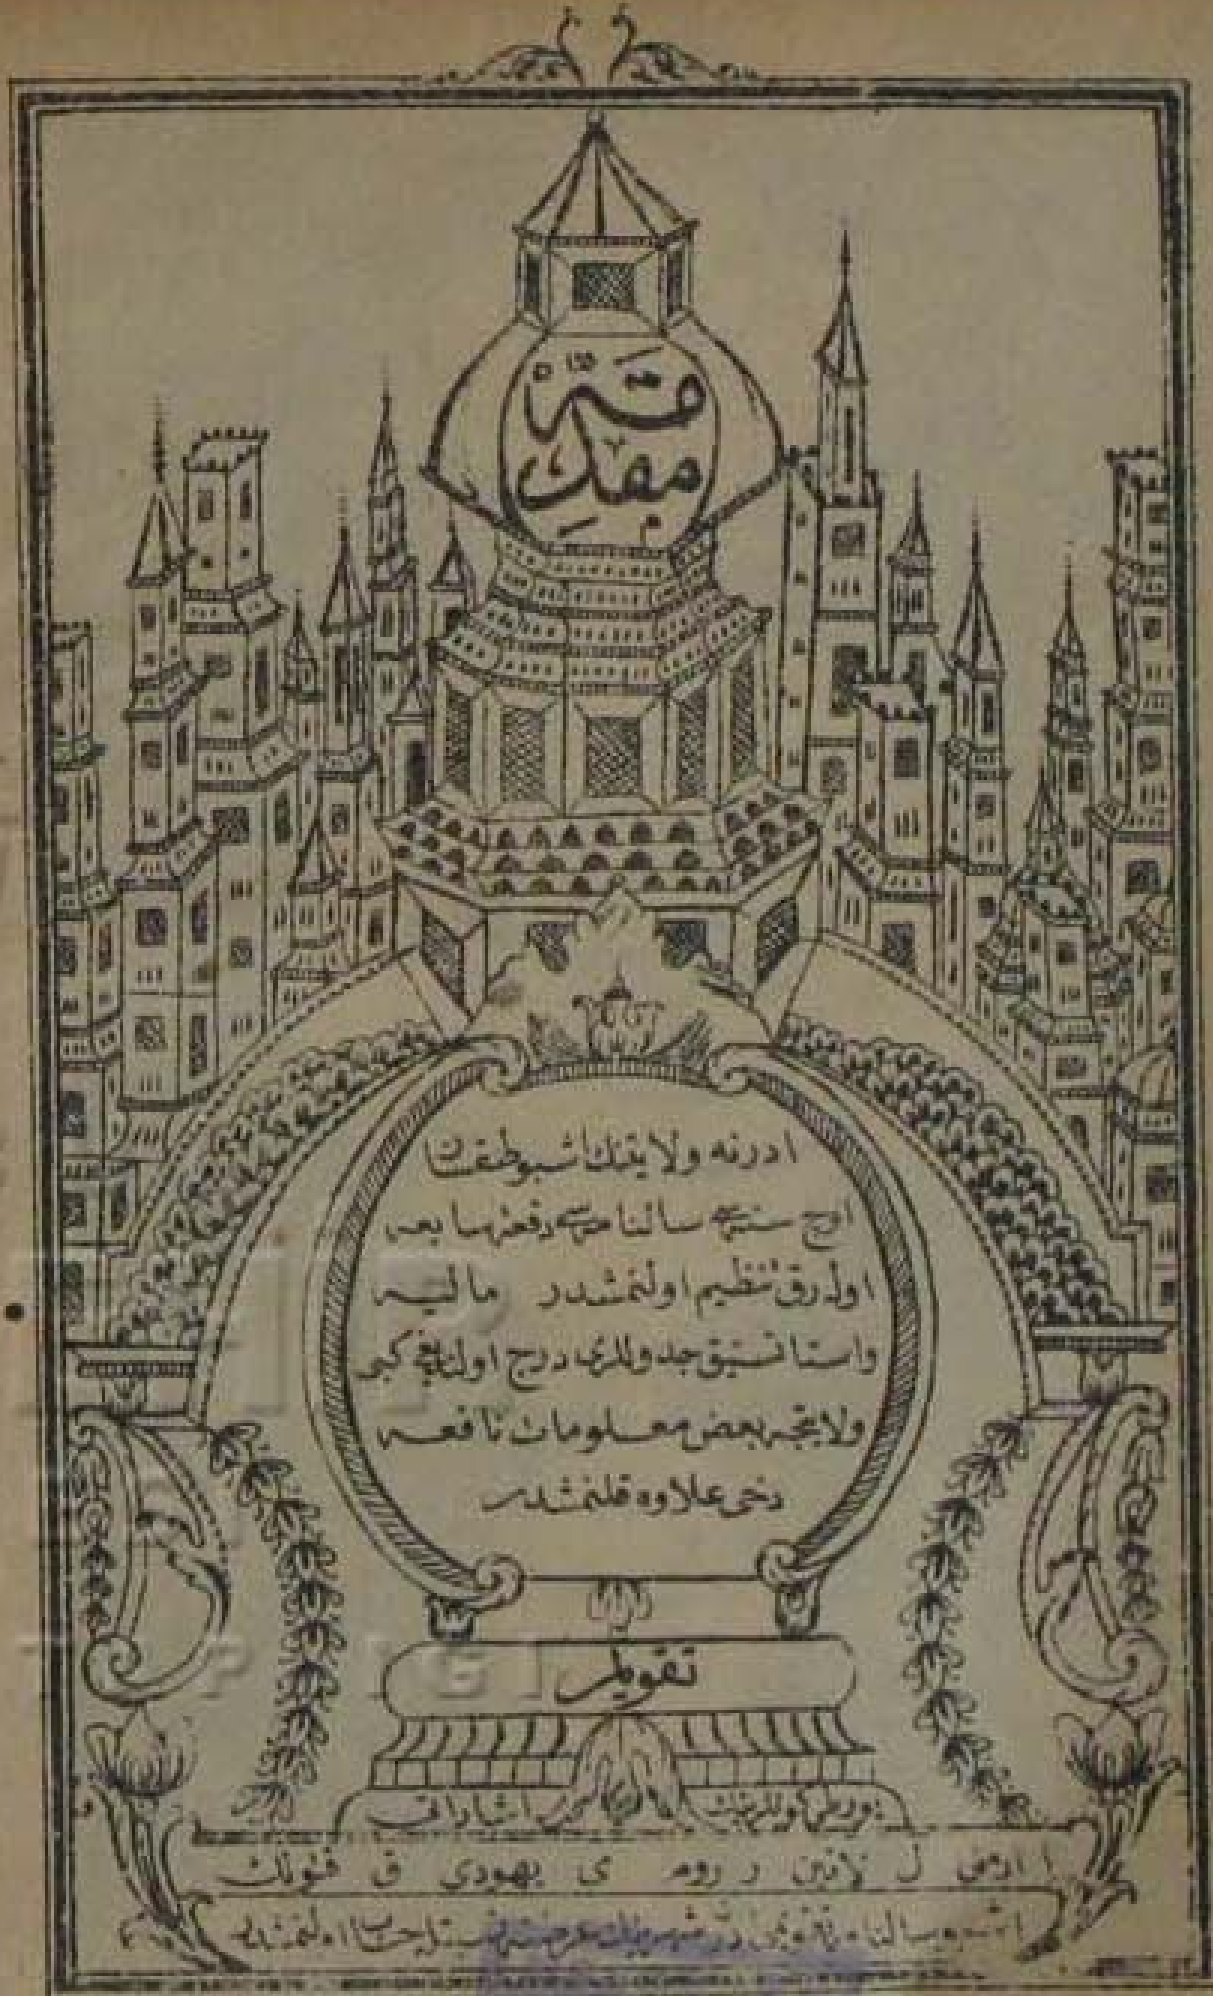 مقدمة
ادرنه ولايتنك اشبو طقسان
اوچ سنه‌سی سالنامه‌سی دفعهٔ سابعه
اوله‌رق تنظیم اولنمشدر مالیه
واستاتستیق جدوللری درج اولندیغی کبی
ولایتجه بعض معلومات نافعه
دخی علاوه قلنمشدر
تقویملر
یورطی کونلرینك اشاراتی
ا ارمنی ل لاتین ر روم ی یهودی ق قتولك
اشبو سالنامه تقویمی اولنمشدر